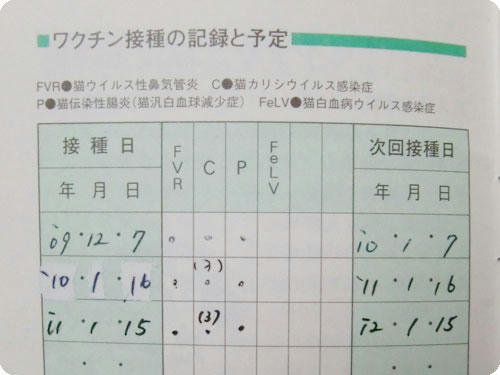 ■ワクチン接種の記録と予定
FVR●猫ウイルス性鼻気管炎 C●猫カリシウイルス感染症
P●猫伝染性腸炎(猫汎白血球減少症) FeLV●猫白血病ウイルス感染症
接種日 FVR C P FeLV 次回接種日
年 月 日 年 月 日
'09・12・7 '10・1・7
'10・1・16 (3) '11・1・16
'11・1・15 (3) '12・1・15